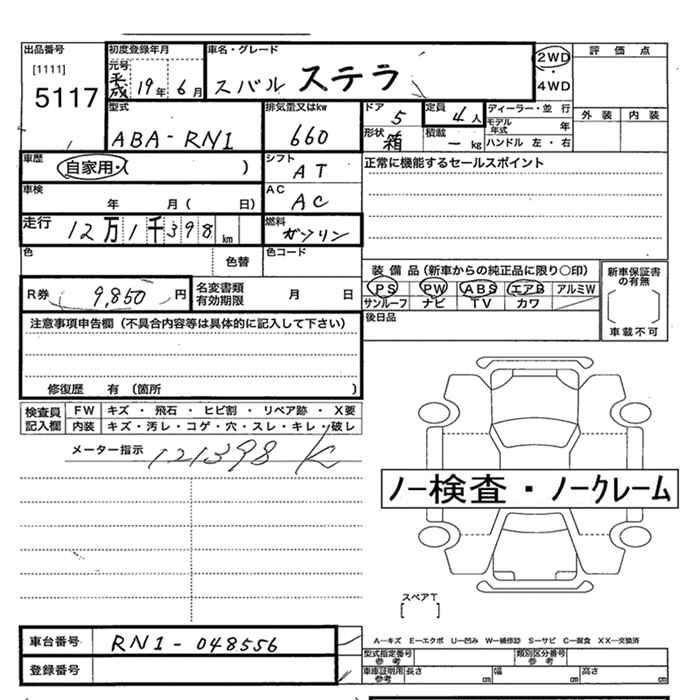 出品番号 初度登録年月 車名・グレード 2WD 評価点
[1111] 元号 平成 19年 6月 スバル ステラ ・
5117 4WD
型式 排気量又はkw ドア 定員 ディーラー・並行 外装 内装
ABA-RN1 660 5 4人 モデル年式 年
形状 箱 積載 ー kg ハンドル 左・右
車歴 自家用・( ) シフト AT 正常に機能するセールスポイント
車検 年 月( 日) AC AC
走行 12万1千398km 燃料 ガソリン
色 色替 色コード
装備品(新車からの純正品に限り○印) 新車保証書の有無
R券 9,850円 名変書類有効期限 月 日 PS PW ABS エアB アルミW
サンルーフ ナビ TV カワ [ ]
注意事項申告欄(不具合内容等は具体的に記入して下さい) 後日品 車載不可
修復歴 有(箇所 )
検査員記入欄 FW キズ・飛石・ヒビ割・リペア跡・X要
内装 キズ・汚レ・コゲ・穴・スレ・キレ・破レ
メーター指示 121398 K
ノー検査・ノークレーム
スペアT
[ ]
車台番号 RN1-048556 A―キズ E―エクボ U―凹み W―補修跡 S―サビ C―腐食 XX―交換済
型式指定番号 参考 類別区分番号 参考
登録番号 車庫証明用 参考 長さ cm 幅 cm 高さ cm